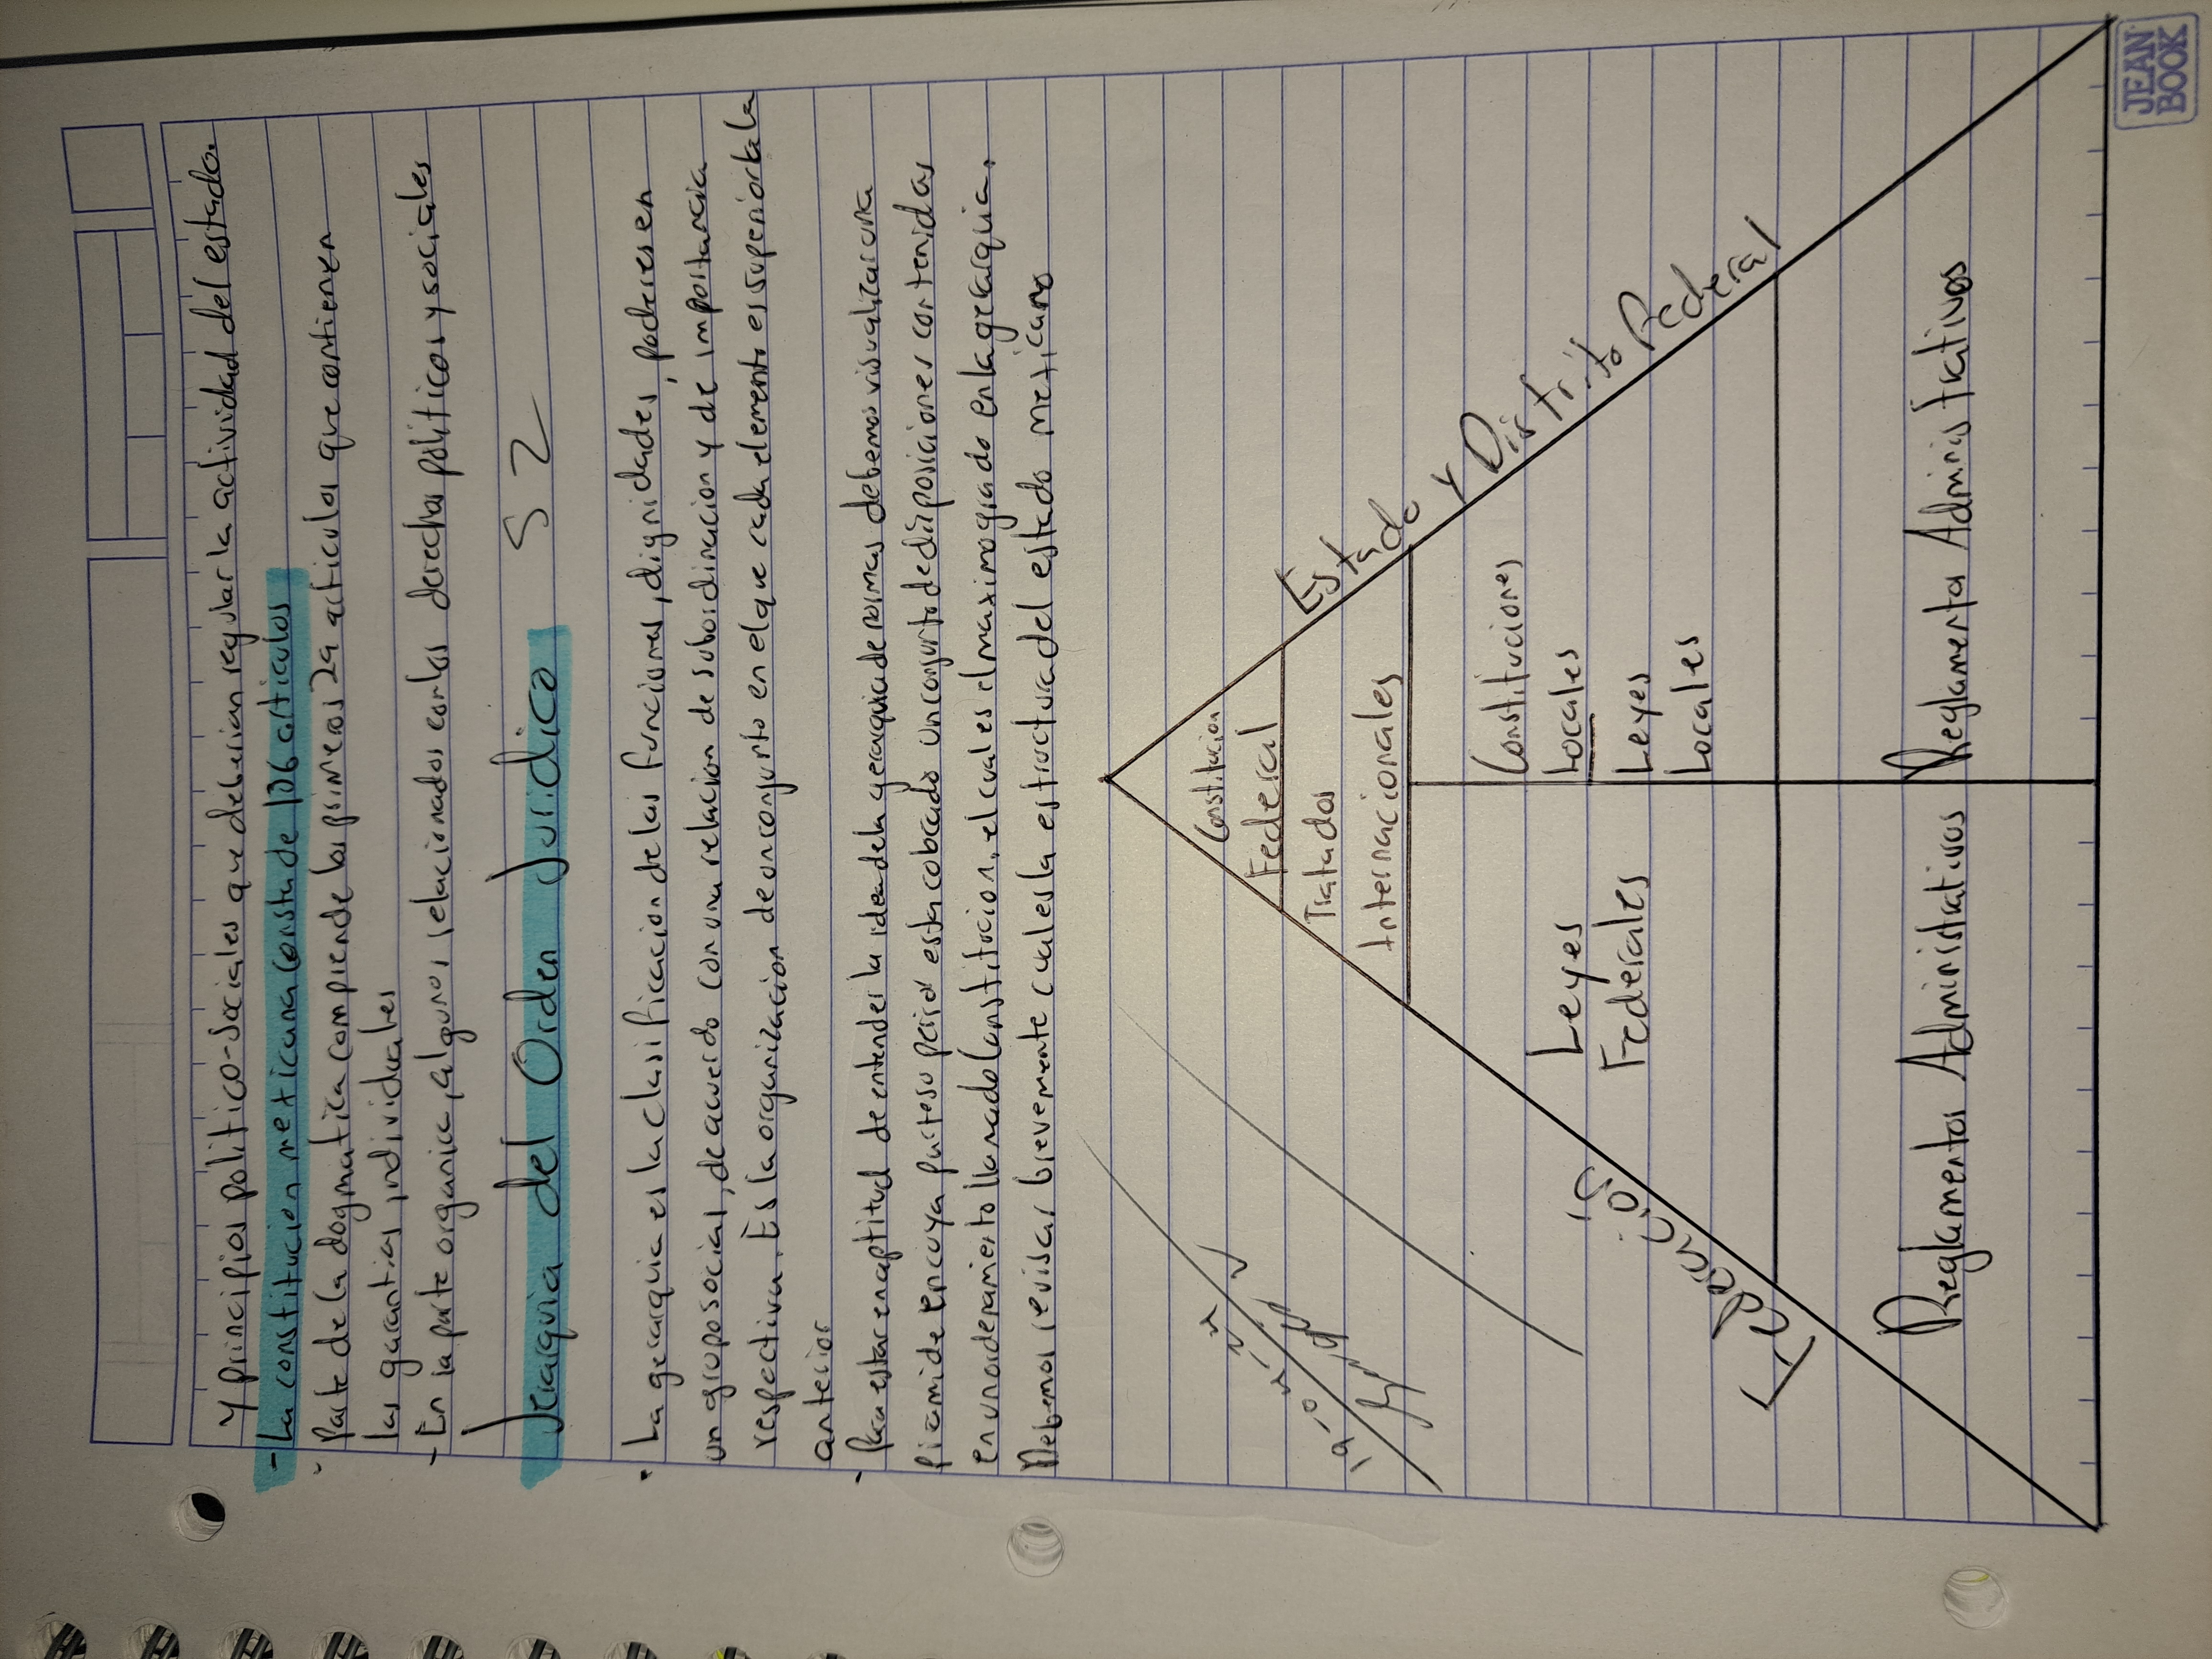 y principios politico-sociales que deberian regular la actividad del estado.
- La constitucion mexicana consta de 136 articulos
· Parte de la dogmatica comprende los primeros 29 articulos que contienen
las garantias individuales
- En la parte organica, algunos relacionados con los derechos politicos y sociales
Jerarquia del Orden Juridico 52
· La gerarquia es la clasificacion de las funciones, dignidades, poderes en
un grupo social, de acuerdo con una relacion de subordinacion y de importancia
respectiva. Es la organizacion de un conjunto en el que cada elemento es superior la
anterior
- Para estar en aptitud de entender la idea de la gerarquia de normas debemos visualizar una
piramide en cuya esta colocado un conjunto de disposiciones contenidas
en un ordenamiento llamado Constitucion, el cual es el maximo grado en la gerarquia.
Debemos revisar brevemente cual es la estructura del estado mexicano
Constitucion
Federal
Tratados
Internacionales
Estado y Distrito Federal
Leyes
Federales
Constituciones
Locales
Leyes
Locales
Reglamentos Administrativos
Reglamentos Administrativos
JEAN
BOOK